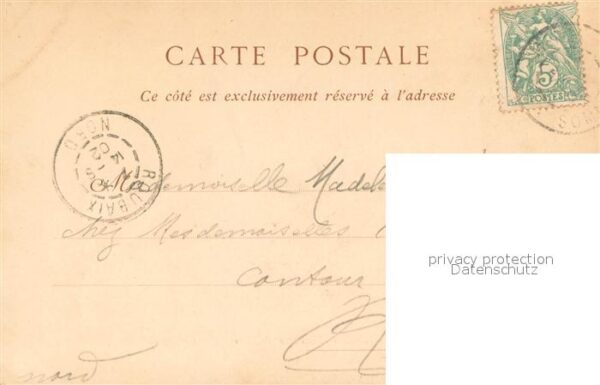 CARTE POSTALE
Ce côté est exclusivement réservé à l'adresse
5
POSTES
ROUBAIX
NORD
Mademoiselle Madel
chez Mesdemoiselles
Contour
nord
privacy protection
Datenschutz